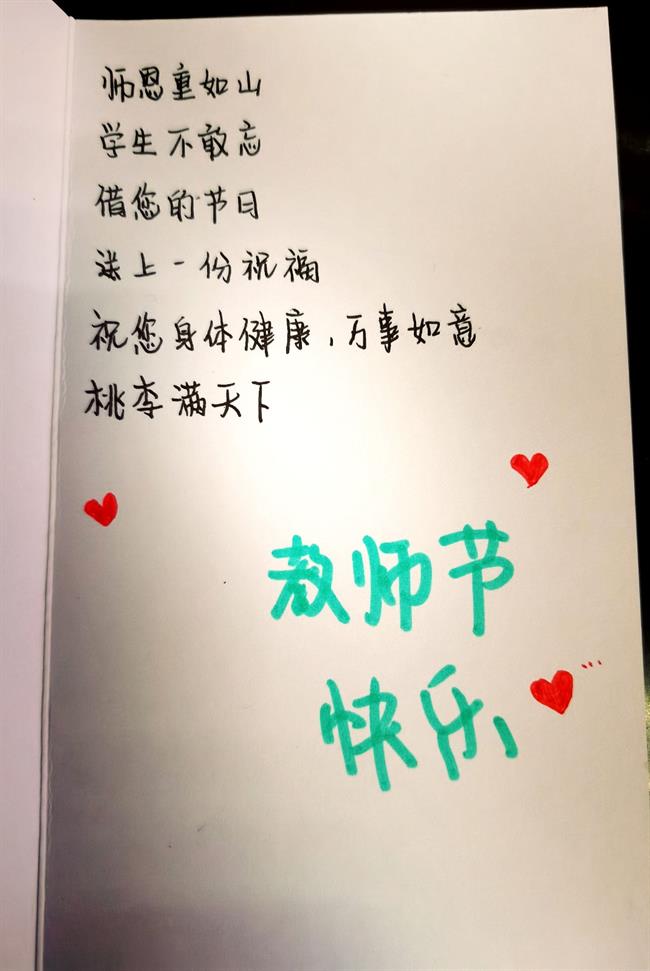 师恩重如山
学生不敢忘
借您的节日
送上一份祝福
祝您身体健康，万事如意
桃李满天下
教师节
快乐